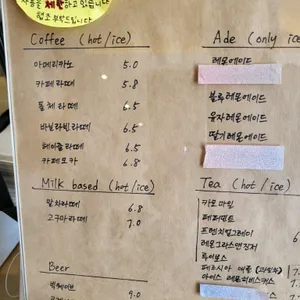 사용을 제한하고 있습니다
협조 부탁드립니다
Coffee (hot/ice)
아메리카노 5.0
카페라떼 5.8
돌체라떼 6.5
바닐라빈라떼 6.5
헤이즐라떼 6.5
카페모카 6.8
Milk based (hot/ice)
말차라떼 6.8
고구마라떼 7.0
Beer
9.0
Ade (only ice
레몬에이드
블루레몬에이드
유자레몬에이드
딸기레몬에이드
Tea (hot/ice)
카모마일
페퍼민트
프렌치얼그레이
레몬그라스앤진저
루이보스